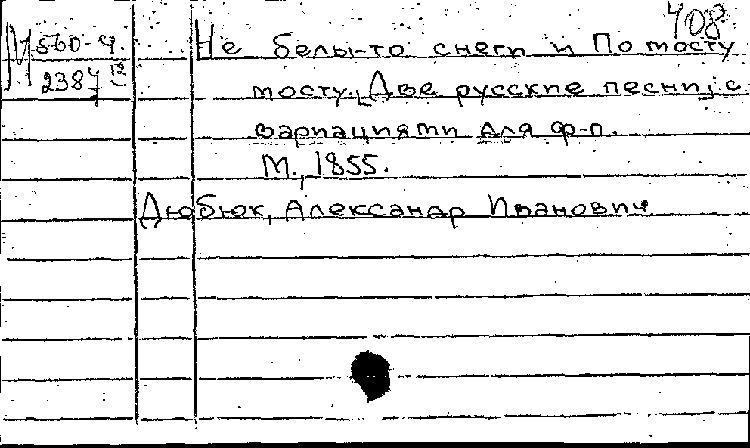 408
М 560-4
2387 12
Не белы-то снеги и По мосту
мосту. Две русские песни, с
вариациями для ф-п.
М., 1855.
Дюбюк, Александр Иванович